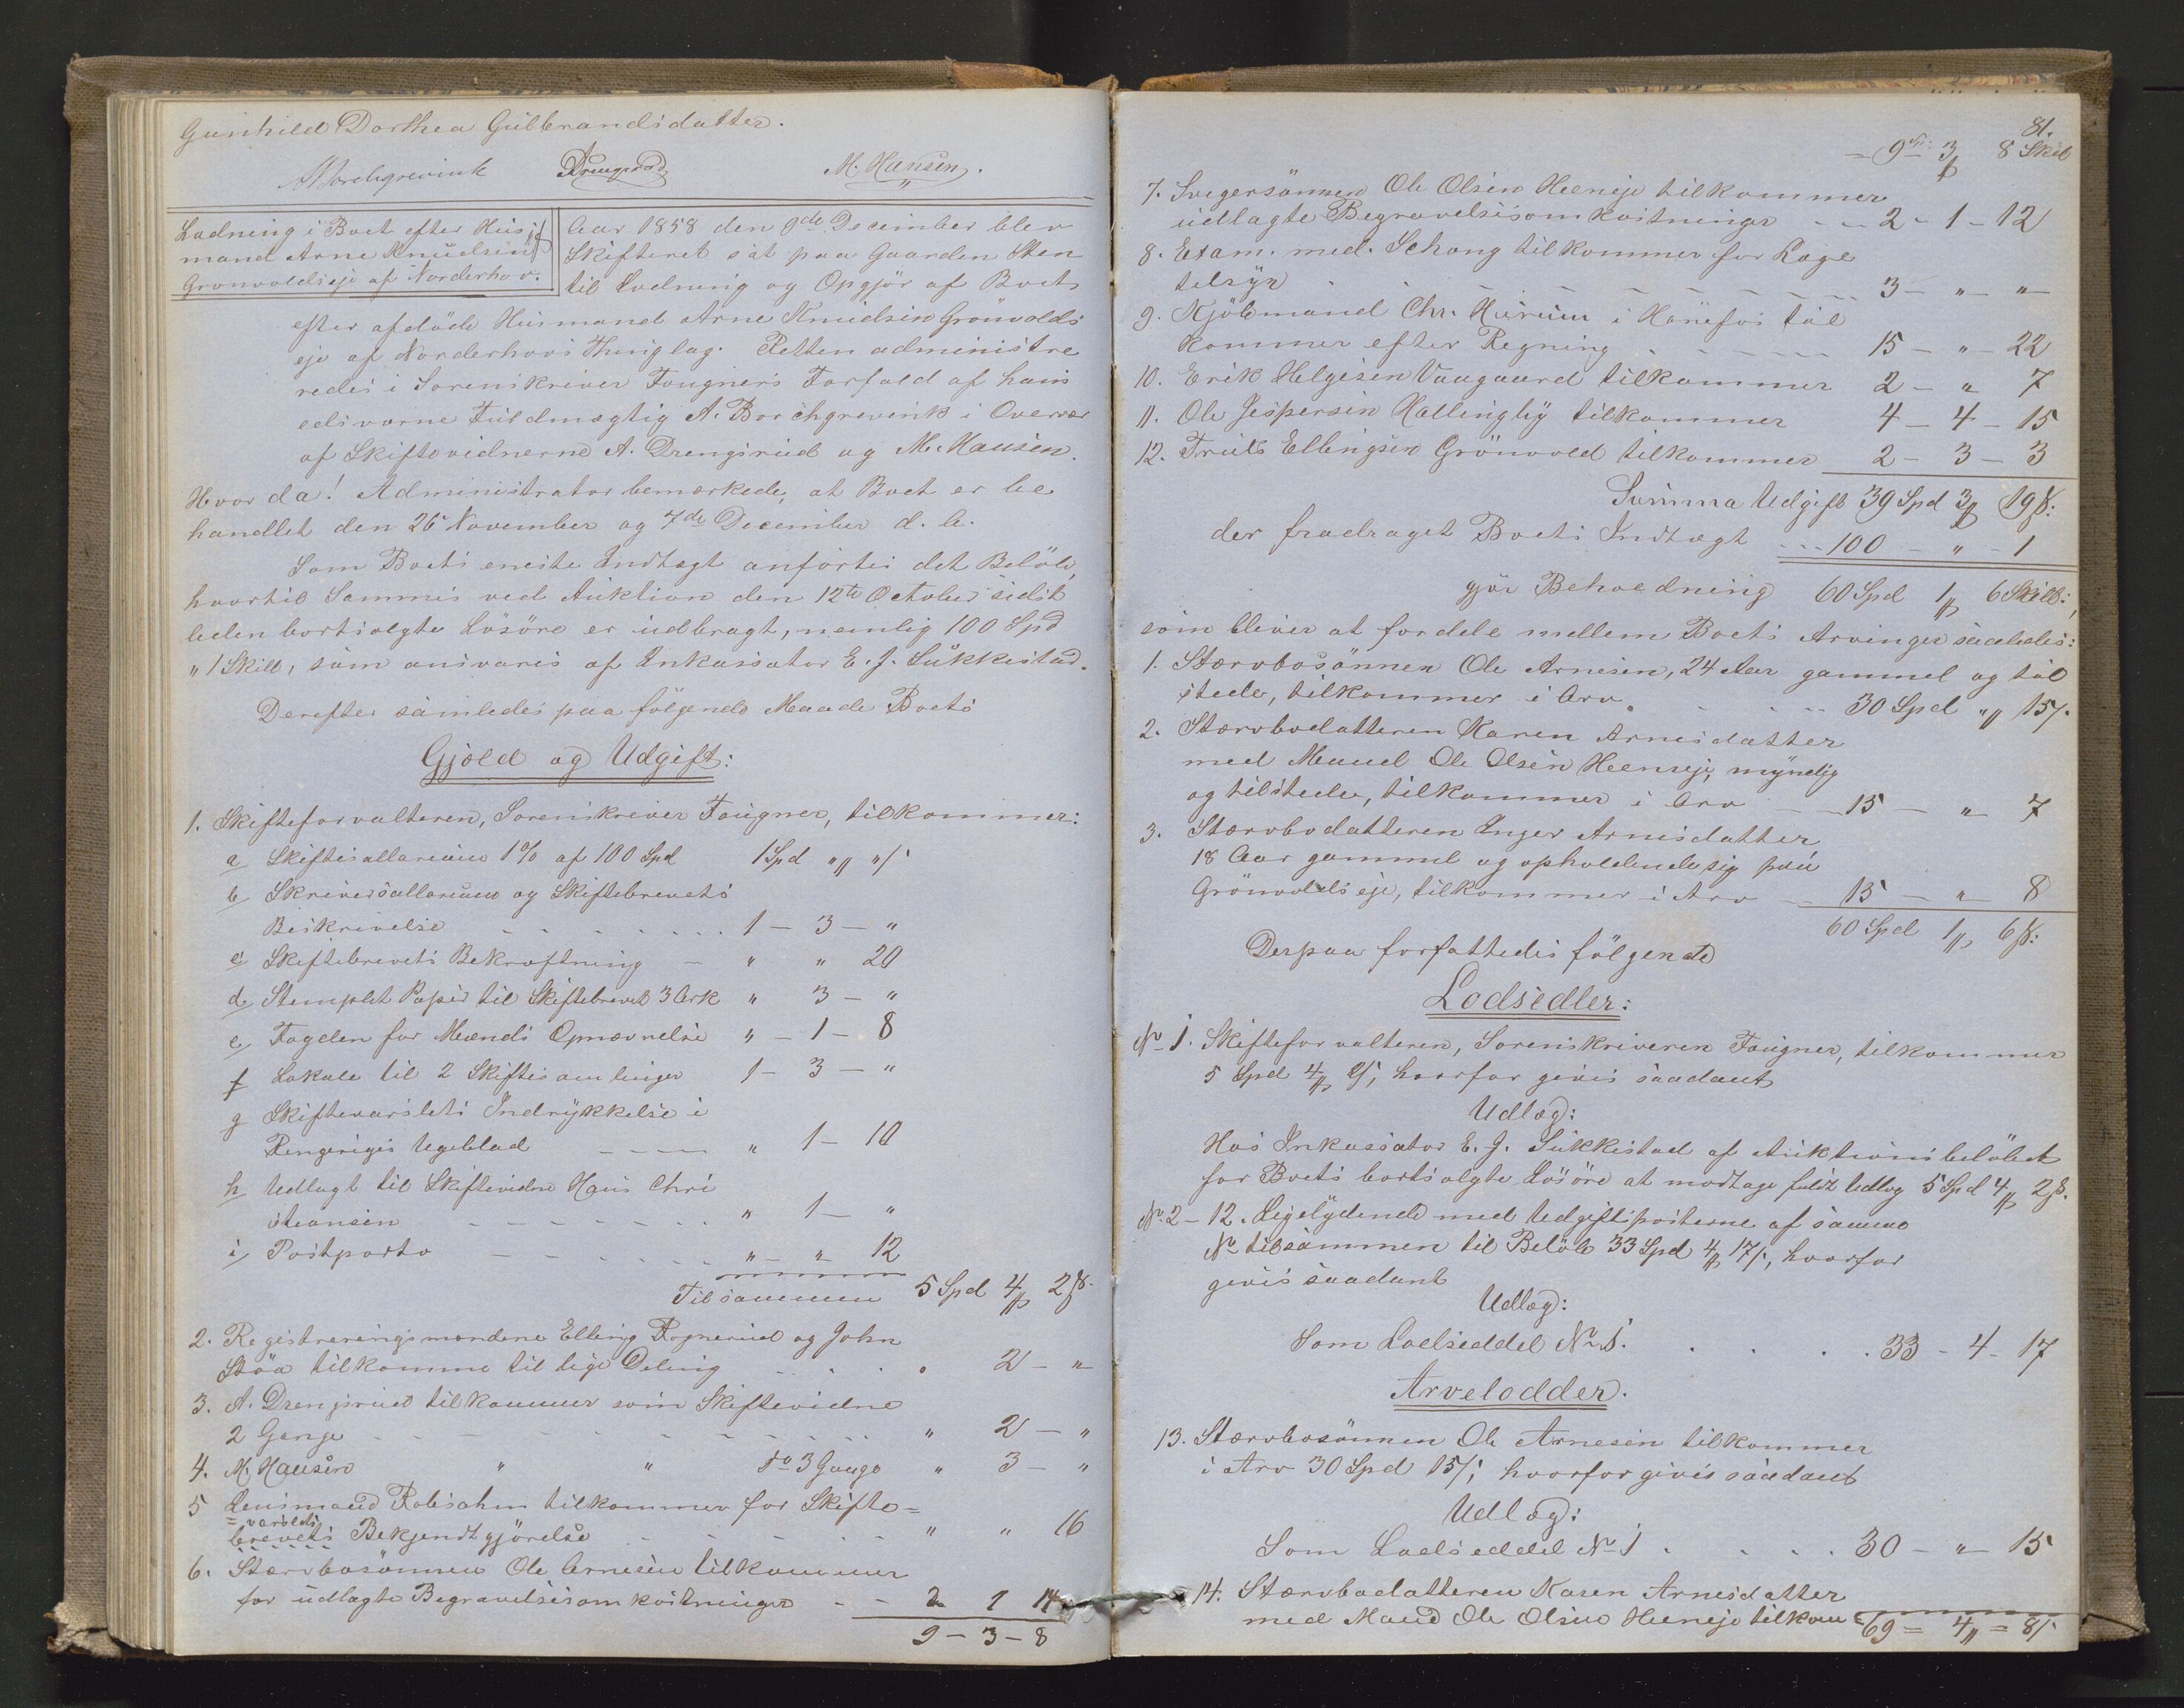 Gunhild Dorthea Gulbrandsdatter.
A Borchgrevink Drengsrud M. Hansen.
Lodning i Boet efter Hus=
mand Arne Knudsen
Grønvoldseje af Norderhov.
Aar 1858 den 9de December blev
Skifteret sat paa Gaarden Sten
til Lodning og Opgjør af Boet
efter afdøde Husmand Arne Knudsen Grønvolds
eje af Norderhovs Thinglag. Retten administre
redes i Sorenskriver Fougners Forfald af hans
edsvorne Fuldmægtig A. Borchgrevink i Overvær
af Skiftevidnerne A. Drengsrud og M. Hansen.
Hvor da! Administrator bemærkede, at Boet er be
handlet den 26 November og 7de December d. A.
Som Boets eneste Indtægt anførtes det Beløb,
hvortil Sammes ved Auktion den 12te October sidst
leden bortsolgte Løsøre er udbragt, nemlig 100 Spd
" 1 Skill, som ansvares af Inkassator E. J. Sukkestad.
Derefter samledes paa følgende Maade Boets
Gjæld og Udgift:
1. Skifteforvalteren, Sorenskriver Fougner, tilkommer:
a Skiftesallarium 1% af 100 Spd 1 Spd " "
b Skriversallarium og Skiftebrevets
Beskrivelse 1 - 3 - "
c Skiftebrevets Bekræftning - " " 20
d Stemplet Papir til Skiftebrevet 3 Ark " 3 - "
e Fogden for Mænds Opnævnelse " - 1 - 8
f Lokale til 2 Skiftesamlinger 1 - 3 - "
g Skiftevarslets Indrykkelse i
Ringeriges Ugeblad " 1 - 10
h Udlagt til Skiftevidne Hans Chri
stiansen " 1 - "
i Postporto " - " 12
Tilsammen 5 Spd 4 2 s.
2. Registreringsmændene Elling Rognerud og John
Støa tilkomme til lige Deling " 2 - "
3. A. Drengsrud tilkommer som Skiftevidne
2 Gange " 2 - "
4. M. Hansen " " do 3 Gange " 3 - "
5 Lensmand Robsahm tilkommer for Skifte=
=varslets
brevets Bekjendtgjørelse " " 16
6. Stervbosønnen Ole Arnesen tilkommer
for udlagte Begravelsesomkostninger - - 2 1 14
9 - 3 - 8
81.
= 9 Spd: 3 8 Skill
7. Svigersønnen Ole Olsen Heeneje tilkommer
udlagte Begravelsesomkostninger - - 2 - 1 - 12
8. Exam. med. Schong tilkommer for Læge
tilsyn 3 - " - "
9. Kjøbmand Chr. Hurum i Hønefos til
kommer efter Regning 15 - " - 22
10. Erik Helgesen Vaagaard tilkommer 2 - " 7
11. Ole Jespersen Hallingby tilkommer 4 - 4 - 15
12. Truls Ellingsen Grønvold tilkommer 2 - 3 - 3
Summa Udgift 39 Spd 3 19 s:
der fradraget Boets Indtægt - - - 100 - " - 1
gjør Beholdning 60 Spd 1 6 Skill:,
som bliver at fordele mellem Boets Arvinger saaledes:
1. Stervbosønnen Ole Arnesen, 24 Aar gammel og til
stede, tilkommer i Arv 30 Spd " 15 s.
2. Stervbodatteren Karen Arnesdatter
med Mand Ole Olsen Heeneeje, myndig
og tilstede, tilkommer i Arv - - 15 - " 7
3. Stervbodatteren Inger Arnesdatter
18 Aar gammel og opholdende sig paa
Grønvoldseje, tilkommer i Arv - 15 - " - 8
60 Spd 1 6 s:
Derpaa forfattedes følgende
Lodsedler:
No 1. Skifteforvalteren, Sorenskriveren Fougner, tilkommer
5 Spd 4 2 s, hvorfor gives saadant
Udlæg:
Hos Inkassator E. J. Sukkestad af Auktionsbeløbet
for Boets bortsolgte Løsøre at modtage fuldt Udlæg 5 Spd 4 2 s.
No 2 - 12. Ligelydende med Udgiftsposterne af samme
No tilsammen til Beløb 33 Spd 4 17 s, hvorfor
gives saadant
Udlæg:
Som Lodseddel No 1. 33 - 4 - 17
Arvelodder.
13. Stervbosønnen Ole Arnesen tilkommer
i Arv 30 Spd 15 s, hvorfor gives saadant
Udlæg:
Som Lodseddel No 1 30 - " - 15
14. Stervbodatteren Karen Arnesdatter
med Mand Ole Olsen Heeneje tilkom
= 69 = 4 = 8 s.